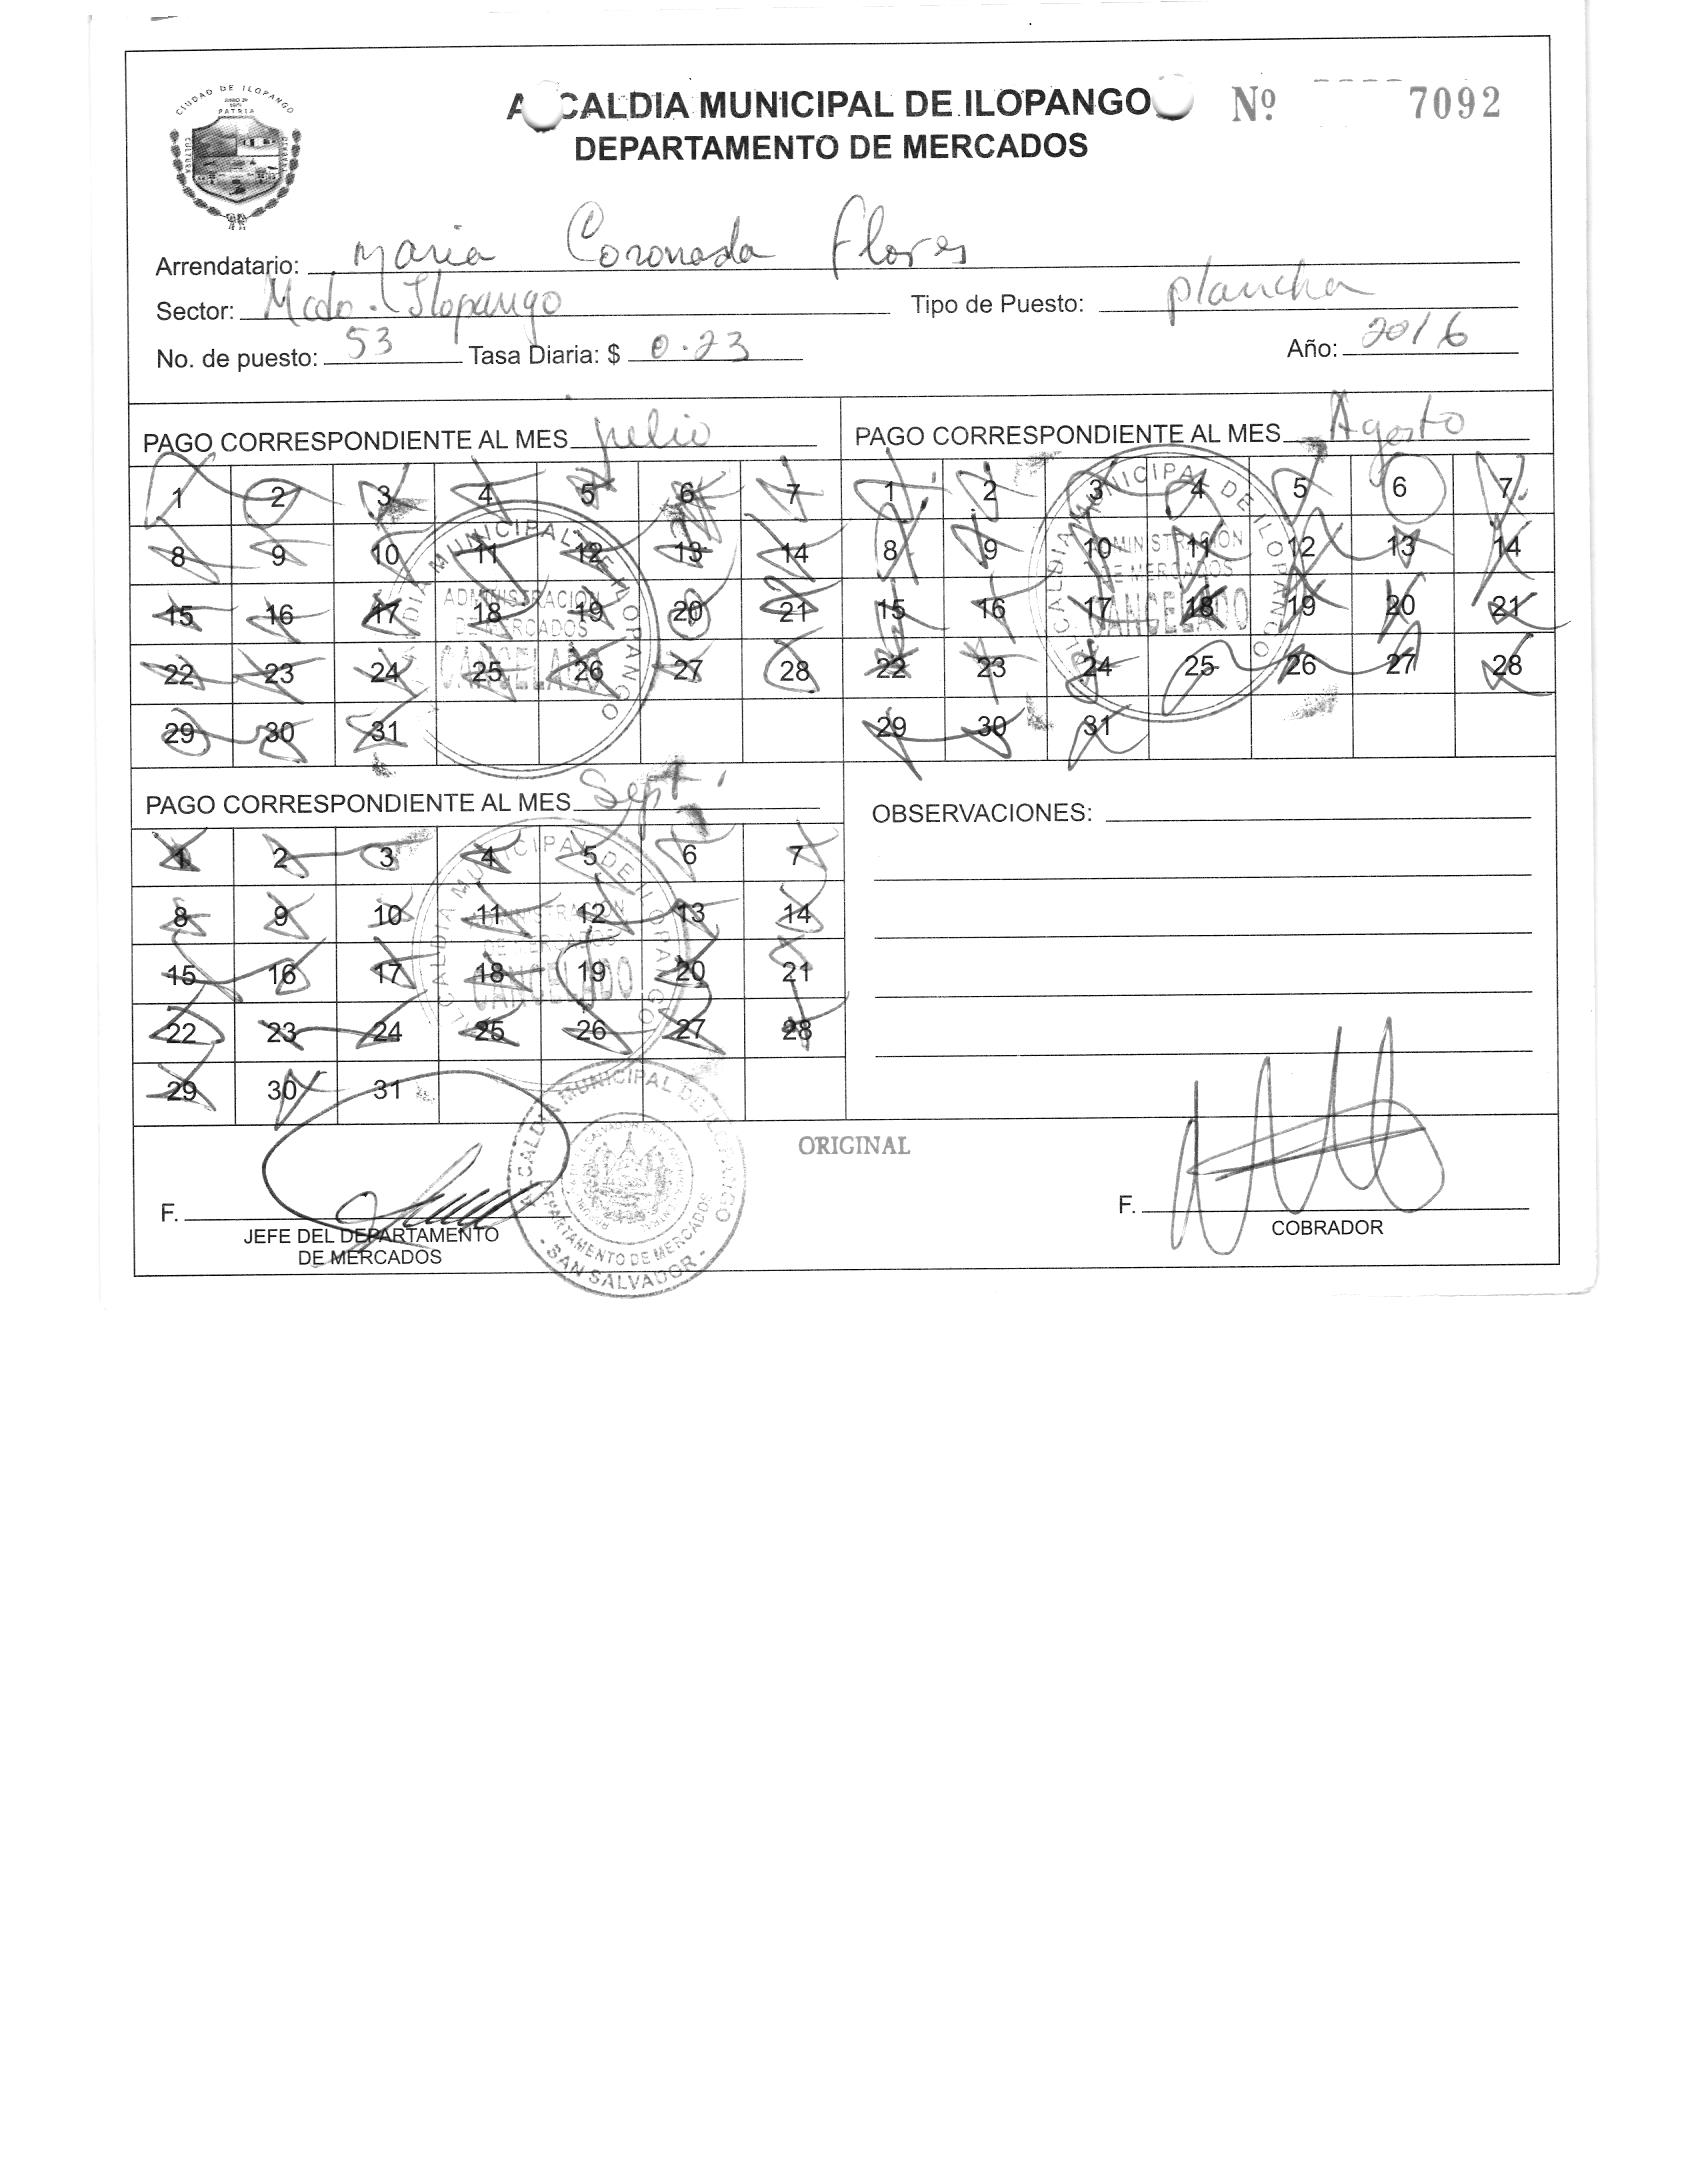 CIUDAD DE ILOPANGO
PATRIA
CULTURA
ALCALDIA MUNICIPAL DE ILOPANGO
Nº 7092
DEPARTAMENTO DE MERCADOS
Arrendatario: Maria Coronada Flores
Sector: Mcdo. Ilopango Tipo de Puesto: plancha
No. de puesto: 53 Tasa Diaria: $ 0.23 Año: 2016
PAGO CORRESPONDIENTE AL MES Julio
1 2 3 4 5 6 7
8 9 10 11 12 13 14
15 16 17 18 19 20 21
22 23 24 25 26 27 28
29 30 31
ALCALDIA MUNICIPAL DE ILOPANGO
ADMINISTRACION
DE MERCADOS
CANCELADO
PAGO CORRESPONDIENTE AL MES Agosto
1 2 3 4 5 6 7
8 9 10 11 12 13 14
15 16 17 18 19 20 21
22 23 24 25 26 27 28
29 30 31
ALCALDIA MUNICIPAL DE ILOPANGO
ADMINISTRACION
DE MERCADOS
CANCELADO
PAGO CORRESPONDIENTE AL MES Sept.
1 2 3 4 5 6 7
8 9 10 11 12 13 14
15 16 17 18 19 20 21
22 23 24 25 26 27 28
29 30 31
ALCALDIA MUNICIPAL DE ILOPANGO
ADMINISTRACION
DE MERCADOS
CANCELADO
OBSERVACIONES:
ORIGINAL
F.
JEFE DEL DEPARTAMENTO
DE MERCADOS
ALCALDIA MUNICIPAL DE ILOPANGO
DEPARTAMENTO DE MERCADOS
- SAN SALVADOR -
F.
COBRADOR